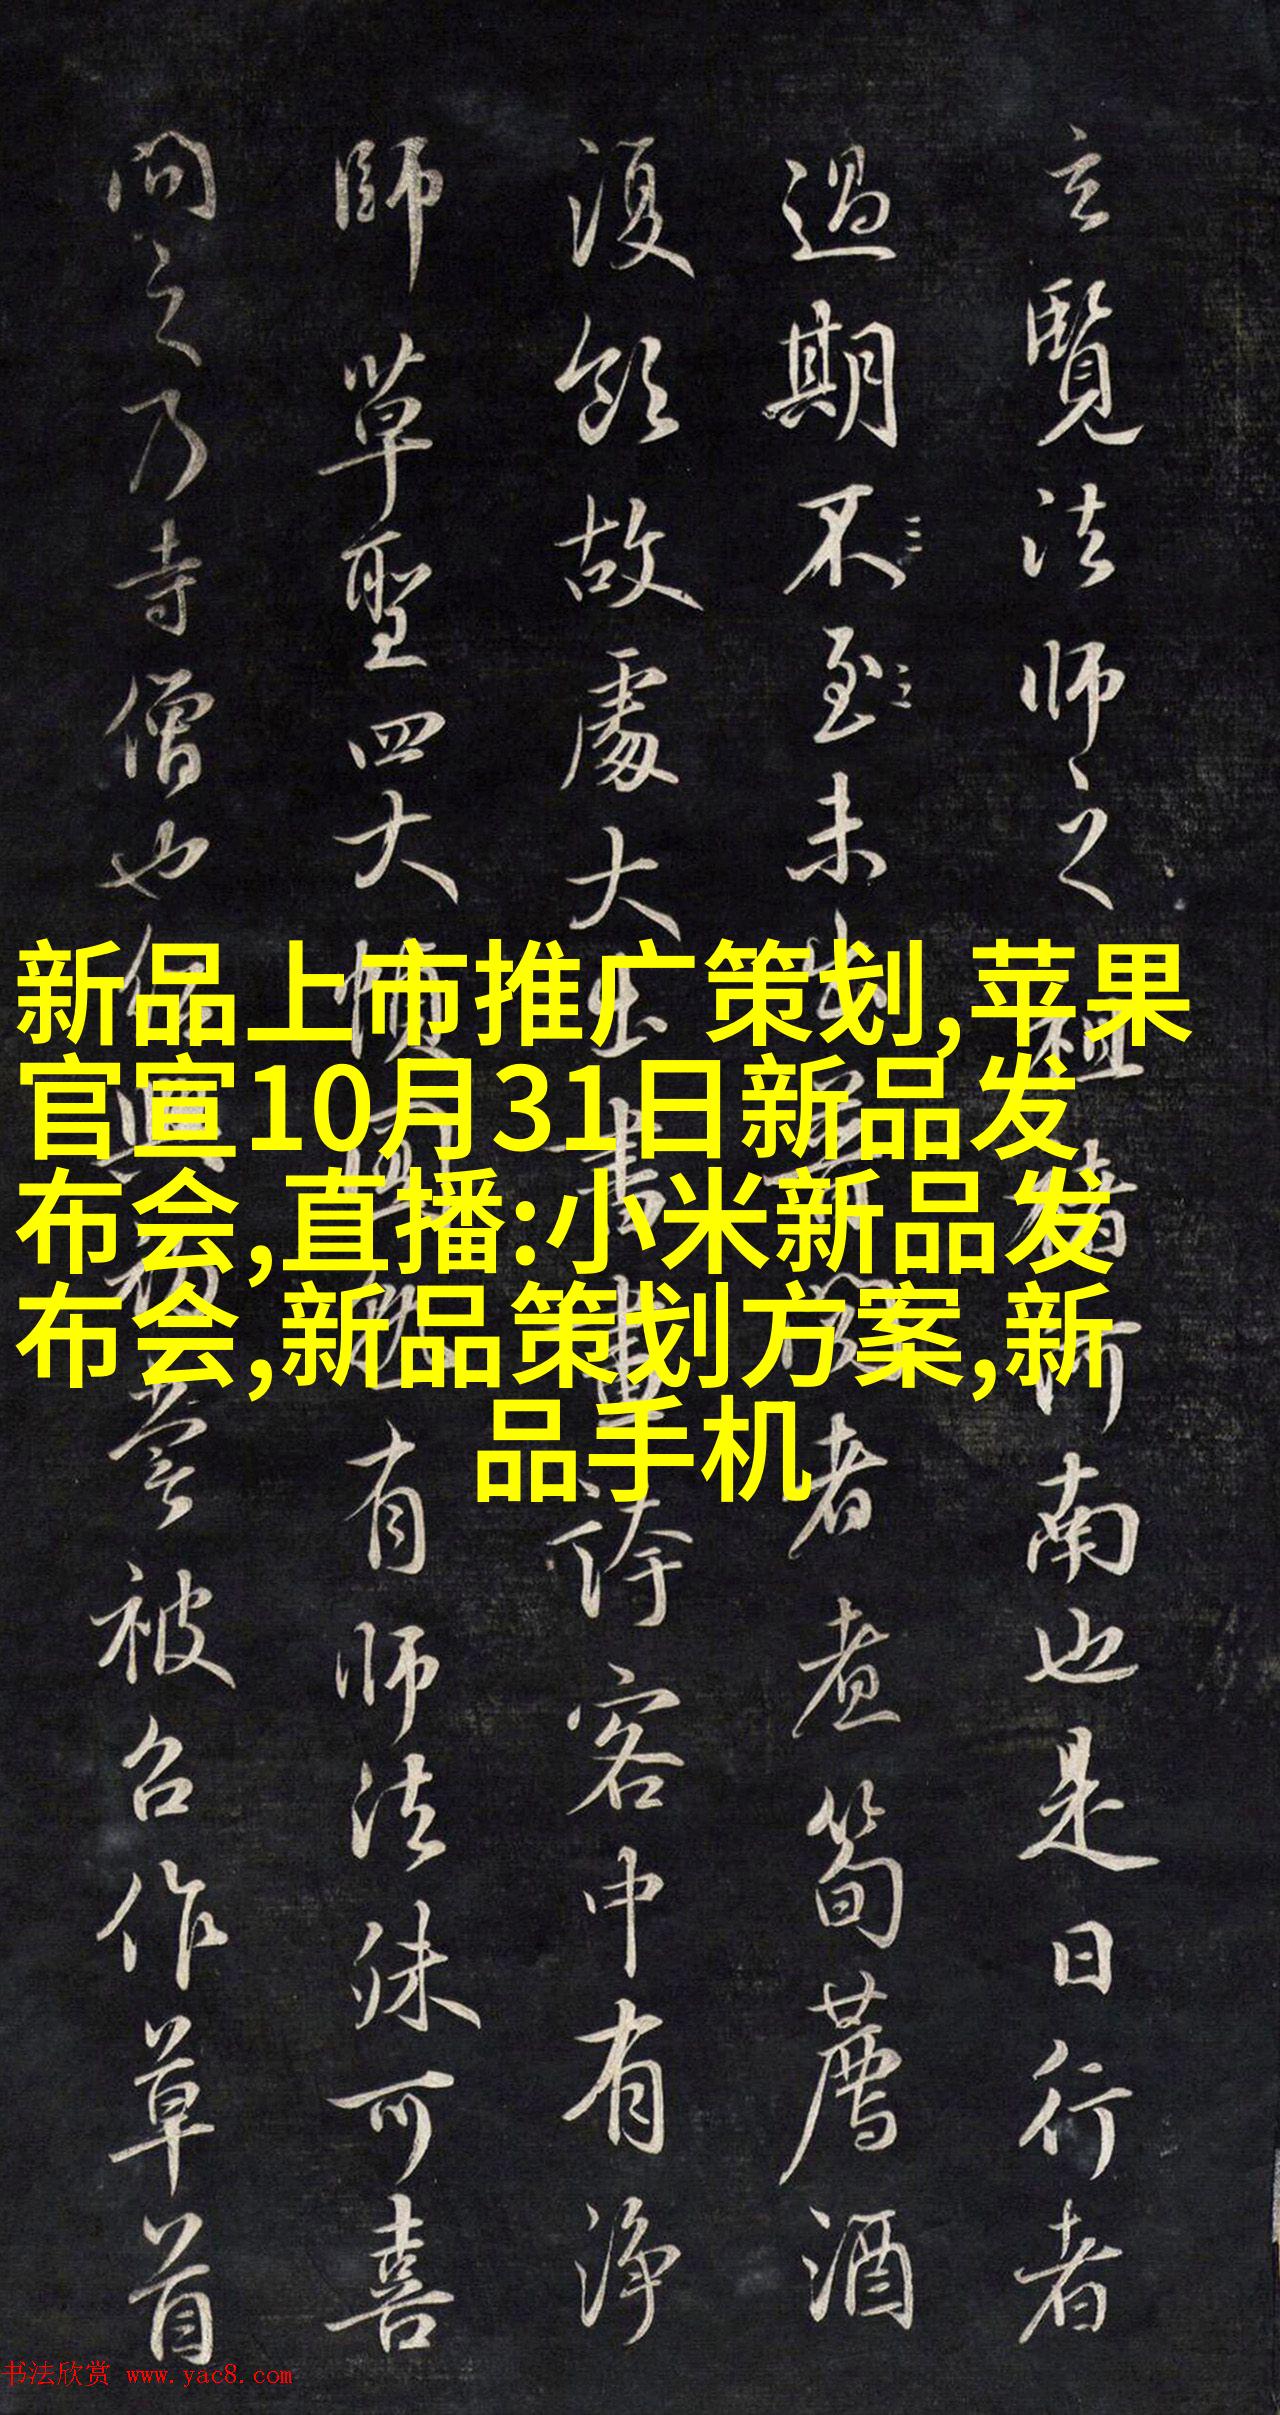 玄覽法师之祖南也是日行者
過期不至未者煮筍薦酒
復飲故處大出書畫客中有淨
師草聖四大有师法殊可喜
問之乃寺僧也被召作草首
新品上市推广策划,苹果
官宣10月31日新品发
布会,直播:小米新品发
布会,新品策划方案,新
品手机
书法欣赏 www.yac8.com